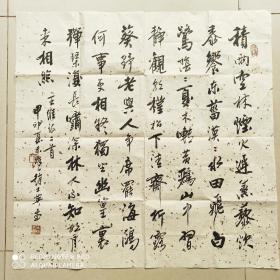 積雨空林煙火遲蒸藜炊
黍餉東菑漠漠水田飛白
鷺陰陰夏木囀黃鸝山中習
静觀朝槿松下清齋折露
葵野老與人争席罷海鷗
何事更相疑獨坐幽篁裏
彈琴復長嘯深林人不知明月
来相照
王維詩二首
甲申夏